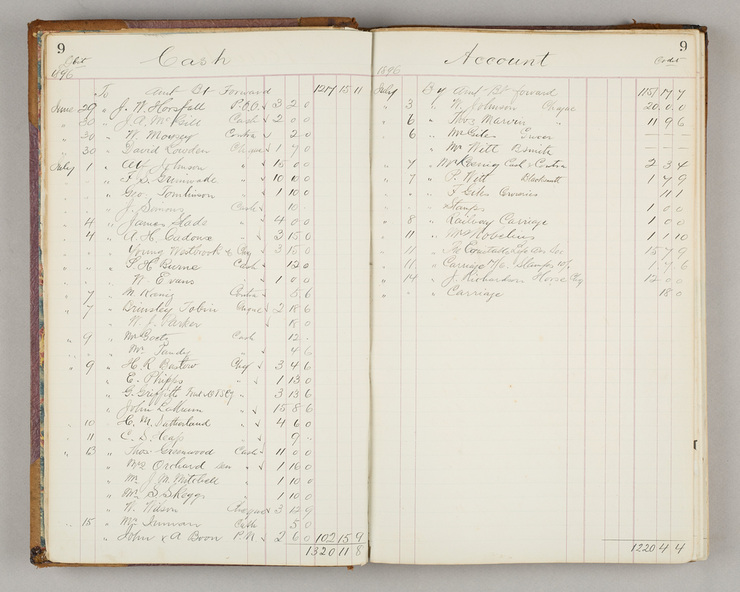 9
Cash
1896
To Amt Bt Forward 1217 15 11
June 29 " J. W. Horsfall P.O.O 3 2 0
" 30 " J. A. McBill Cash 2 0 0
" 30 " W. Mowsey Contra 2 0
" 30 " David Lowden Cheque 1 7 0
July 1 " Alf Johnson 15 0 0
" F. S. Grimwade 10 10 0
" Geo Tomlinson 1 10 0
" J. Simons Cash 10
4 " James Slads 4 0 0
4 " A. H. Cadoux 3 15 0
" Young Westbrook & Coy 3 15 0
" F H Burne Cash 12 0
" W Evans 1 0 0
7 " M. Koenig Contra 8 6
7 " Brinsley Tobin Cheque 2 18 6
" W. J. Parker 18 0
9 " Mr Gocty Cash 12
" Mr Pendy 4 6
9 " H. R. Bastow Chq 3 4 6
" E. Phipps 1 13 0
" G. Griffith 3 13 6
" John 15 8 6
10 " H. M. Sutherland 4 6 0
11 " C. S. Heap 9
13 " Thos Greenwood Cash 11 0 0
" Mrs Orchard Sen 1 16 0
" Mr J. M. Mitchell 1 10 0
" Mr S Skeggs 1 10 0
" W. Wilson Cheque 3 12 9
15 " Mr Inman Cash 5 0
" John & A Boon P.N 2 6 0 102 15 9
1320 11 8
9
Account
1896
July By Amt Bt forward 1151 7 7
" 3 " W. Johnson Cheque 20 0 0
" 6 " Thos Marven " 11 9 6
" 6 " Mr Giles
" Mr Witt Bsmith
" 7 " Mr Koenig Cash & Contra 2 3 4
" 7 " P. Witt Blacksmith 1 7 9
" F Giles 1 1
" Stamps 1 0 0
" 8 " Railway Carriage 1 0 0
" 11 " Mr Nobelius 1 1 10
" 11 " 15 7 9
" 11 " Carriage Stamps 1 7 6
" 14 " J. Richardson Horse 12 0 0
" " Carriage 18 0
1220 4 4